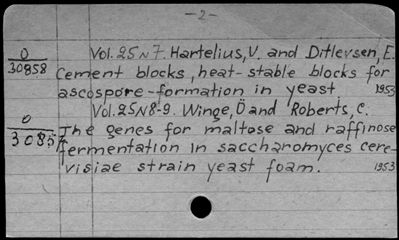 -2-
O Vol. 25 N 7. Hartelius, V. and Ditlevsen, E.
30858 Cement blocks, heat-stable blocks for
ascospore-formation in yeast. 1953
O Vol. 25 N 8-9. Winge, Ö and Roberts, C.
The genes for maltose and raffinose
fermentation in saccharomyces cere-
visiae strain yeast foam. 1953